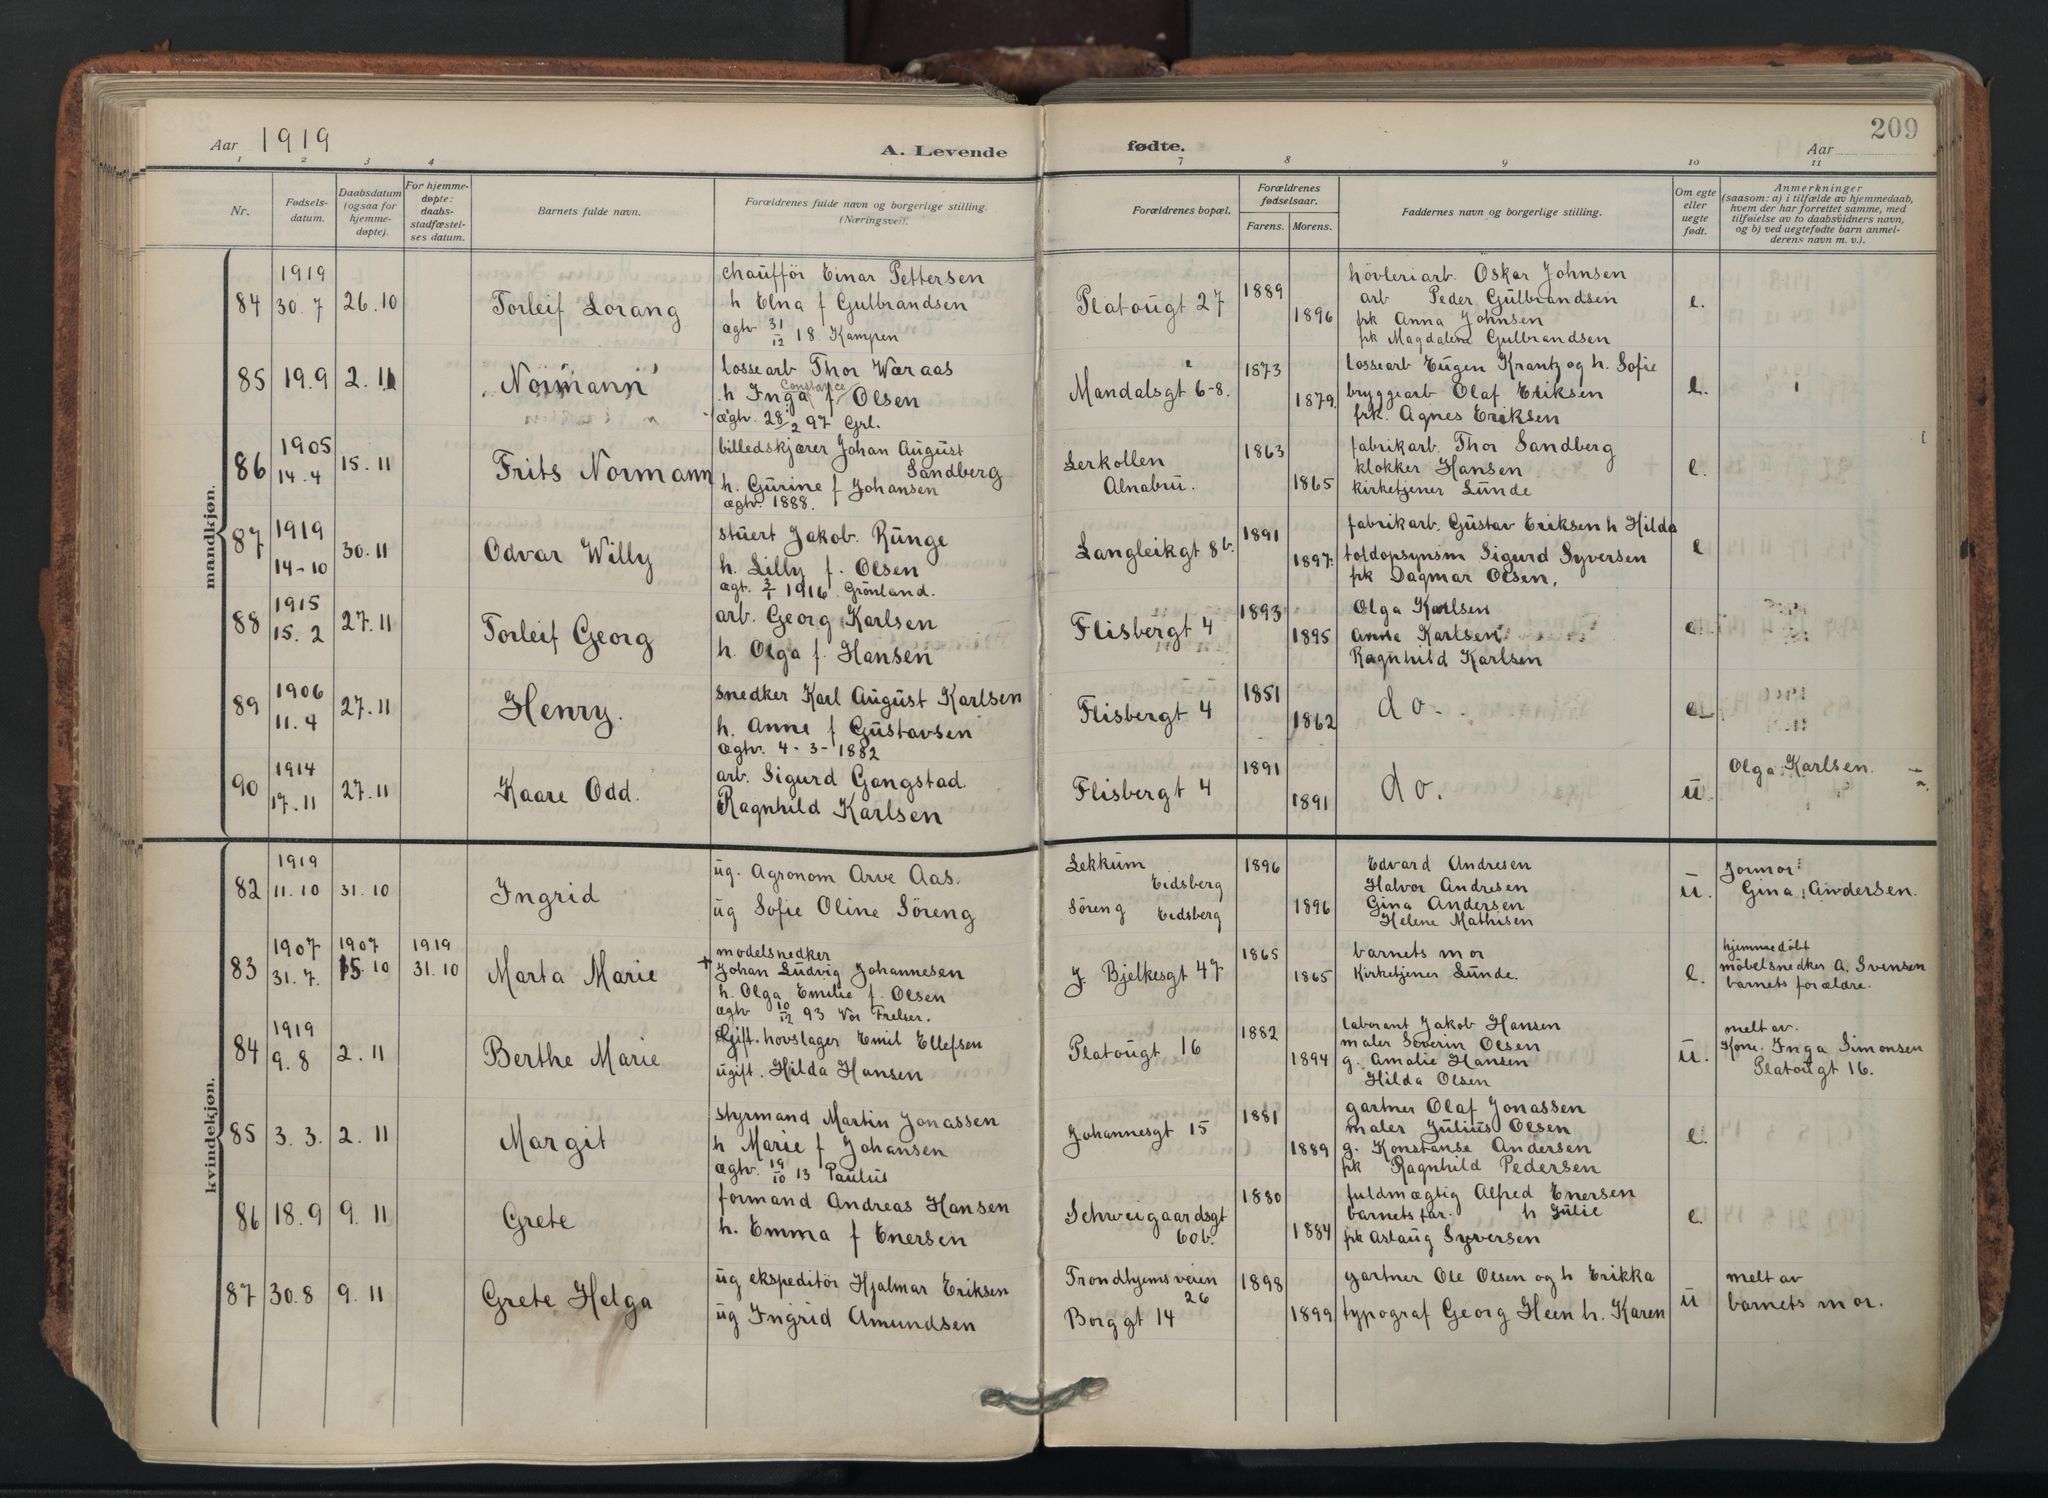 209
Aar 1919
A. Levende
fødte.
Aar
1 2 3 4
7 8 9 10 11
Nr.
Fødsels-
datum.
Daabsdatum
(ogsaa for
hjemme-
døpte).
For hjemme-
døpte:
daabs-
stadfæstel-
ses datum.
Barnets fulde navn.
Forældrenes fulde navn og borgerlige stilling.
(Næringsvei).
Forældrenes bopæl.
Forældrenes
fødselsaar.
Farens. Morens.
Faddernes navn og borgerlige stilling.
Om egte
eller
uegte
født.
Anmerkninger
(saasom: a) i tilfælde av hjemmedaab,
hvem der har forrettet samme, med
tilføielse av to daabsvidners navn,
og b) ved uegtefødte barn anmel-
derens navn m. v.).
mandkjøn.
84
1919
30.7
26.10
Torleif Lorang
chaufför Einar Pettersen
h Elna f Gulbrandsen
ægtv 31/12 18 Kampen
Platougt 27
1889
1896
hövleriarb. Oskar Johnsen
arb Peder Gulbrandsen
frk Anna Johnsen
frk Magdalene Gulbrandsen
e.
85
19.9
2.11
Normann
lossearb Thor Wæraas
h Inga Constance f Olsen
ægtv. 28/2 97 Grl.
Mandalsgt 6-8.
1873
1879.
lossearb Eugen Krantz og h. Sofie
bryggearb Olaf Eriksen
frk. Agnes Eriksen
e.
86
1905
14.4
15.11
Frits Normann
billedskjærer Johan August
Sandberg
h. Gurine f Johansen
ægtv. 1888.
Lerkollen
Alnabru.
1863
1865
fabrikarb. Thor Sandberg
klokker Hansen
kirketjener Lunde
e.
87
1919
14-10
30.11
Odvar Willy
stuert Jakob Runge
h. Lilly f. Olsen
ægt. 3/1 1916 Grönland.
Langleikgt 8b.
1891
1897.
fabrikarb. Gustav Eriksen h Hilda
toldopsynsm Sigurd Syversen
frk Dagmar Olsen,
e
88
1915
15.2
27.11
Torleif Georg
arb. Georg Karlsen
h. Olga f. Hansen
Flisbergt 4
1893
1895
Olga Karlsen
Anne Karlsen
Ragnhild Karlsen
e.
89
1906
11.4
27.11
Henry.
snedker Karl August Karlsen
h. Anne f Gustavsen
ægtv. 4-3-1882
Flisbergt 4
1851
1862
do.
e
90
1914
17.11
27.11
Kaare Odd.
arb. Sigurd Gangstad.
Ragnhild Karlsen
Flisbergt 4
1891
1891
do.
u.
Olga Karlsen.
kvindekjøn.
82
1919
11.10
31.10
Ingrid
ug. Agronom Arve Aas.
ug Sofie Oline Söreng
Lekkum
Eidsberg
Söreng Eidsberg
1896
1896
Edvard Andresen
Halvor Andresen
Gina Andersen
Helene Mathisen
u.
Jormor:
Gina Andersen.
83
1907
31.7.
1907
15.10
1919
31.10
Marta Marie
modelsnedker
+ Johan Ludvig Johannesen
h. Olga Emilie f. Olsen
ægtv 10/12 93 Vor Frelser.
J. Bjelkesgt 47
1865
1865
barnets mor
Kirketjener Lunde.
e.
hjemmedöbt
möbelsnedker A. Svensen
barnets forældre.
84
1919
9.8
2.11
Berthe Marie
Gift. hovslager Emil Ellefsen
ugift. Hilda Hansen
Platougt 16
1882
1894
laborant Jakob Hansen
maler Severin Olsen
g. Amalie Hansen
Hilda Olsen
u.
melt av.
Kone. Inga Simonsen
Platougt 16.
85
3.3.
2.11
Margit
styrmand Martin Jonassen
h Marie f Johansen
ægtv. 19/10 13 Paulus
Johannesgt 15
1881
1889
gartner Olaf Jonassen
maler Julius Olsen
g. Konstanse Andersen
frk Ragnhild Pedersen
e.
86
18.9
9.11
Grete
formand Andreas Hansen
h. Emma f Enersen
Schweigaardsgt
60b.
1880
1884
fuldmægtig Alfred Enersen
barnets far. h Julie
frk Aslaug Syversen
e.
87
30.8
9.11
Grete Helga
ug ekspeditör Hjalmar Eriksen
ug Ingrid Amundsen
Trondhjemsveien
26
Borggt 14
1898
1899
gartner Ole Olsen og h Erikka
typograf Georg Heen h. Karen
u
melt av
barnets mor.